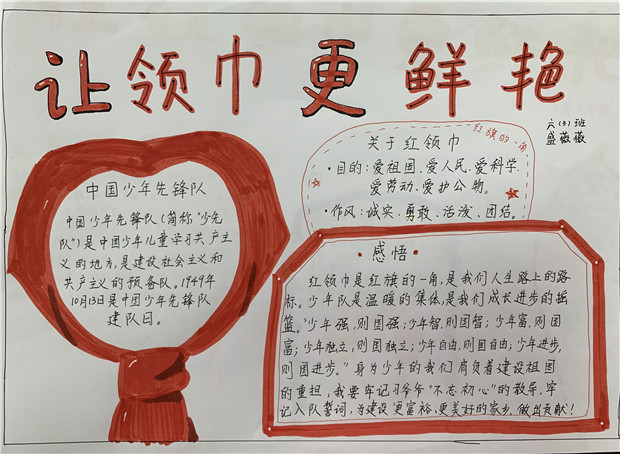 让领巾更鲜艳
六(3)班
盛薇薇
中国少年先锋队
中国少年先锋队(简称"少先
队")是中国少年儿童学习共产主
义的地方,是建设社会主义和
共产主义的预备队。1949年
10月13日是中国少年先锋队
建队日。
红旗的一角
关于红领巾
·目的:爱祖国、爱人民、爱科学、
爱劳动、爱护公物。
·作风:诚实、勇敢、活泼、团结。
·感悟·
红领巾是红旗的一角,是我们人生路上的路
标。少年队是温暖的集体,是我们成长进步的摇
篮。"少年强,则国强;少年智,则国智;少年富,则国
富;少年独立,则国独立;少年自由,则国自由;少年进步,
则国进步。"身为少年的我们肩负着建设祖国
的重担,我要牢记习爷爷"不忘初心"的教导,牢
记入队誓词,为建设更富裕、更美好的家乡,做出贡献!